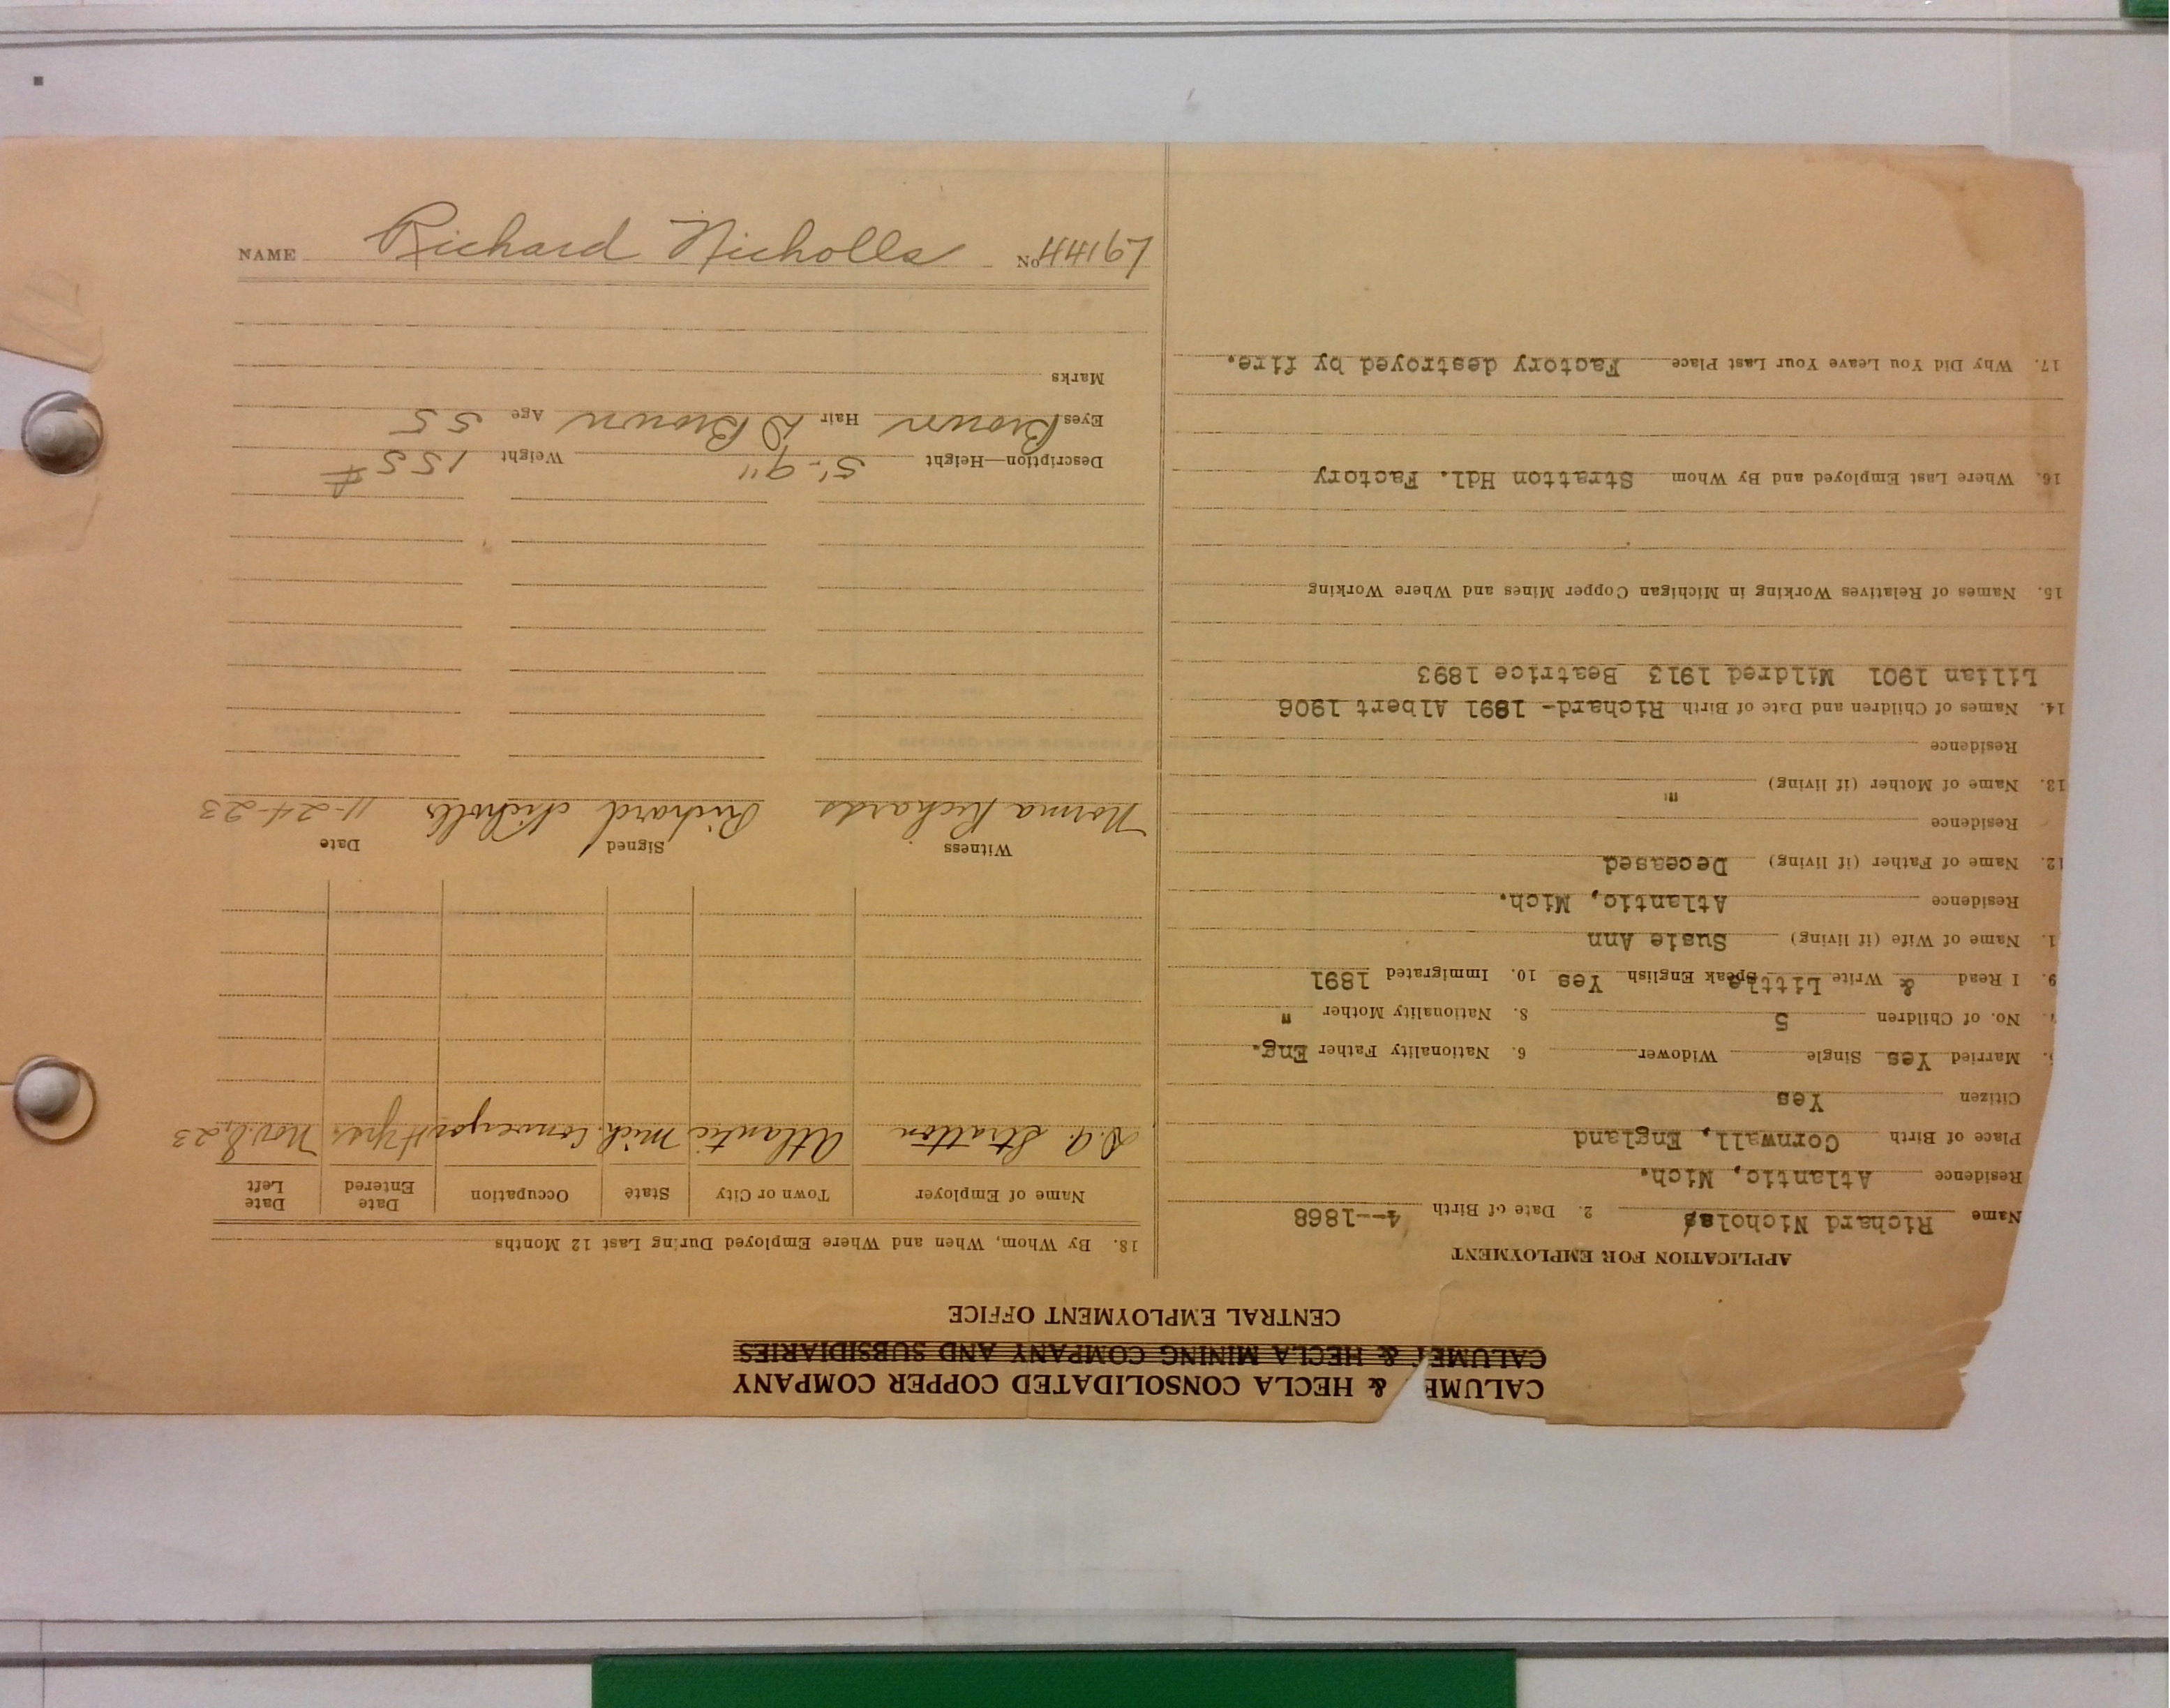 CALUMET & HECLA CONSOLIDATED COPPER COMPANY
CALUMET & HECLA MINING COMPANY AND SUBSIDIARIES
CENTRAL EMPLOYMENT OFFICE
APPLICATION FOR EMPLOYMENT
Name Richard Nicholas 2. Date of Birth 4--1868
Residence Atlantic, Mich.
Place of Birth Cornwall, England
Citizen Yes
Married Yes Single Widower 6. Nationality Father Eng.
No. of Children 5 8. Nationality Mother "
9. I Read & Write Little Speak English Yes 10. Immigrated 1891
1. Name of Wife (if living) Susie Ann
Residence Atlantic, Mich.
12. Name of Father (if living) Deceased
Residence
13. Name of Mother (if living) "
Residence
14. Names of Children and Date of Birth Richard- 1891 Albert 1906
Lilian 1901 Mildred 1913 Beatrice 1893
15. Names of Relatives Working in Michigan Copper Mines and Where Working
16. Where Last Employed and By Whom Stratton Hdl. Factory
17. Why Did You Leave Your Last Place Factory destroyed by fire.
18. By Whom, When and Where Employed During Last 12 Months
Name of Employer Town or City State Occupation Date Entered Date Left
Stratton Atlantic Mich. Conveyor 4 yrs Nov. 8, 23
Witness Signed Date
Norma Richards Richard Nicholls 11-24-23
Description—Height 5'-9" Weight 155 #
Eyes Brown Hair D Brown Age 55
Marks
NAME Richard Nicholls No 44167